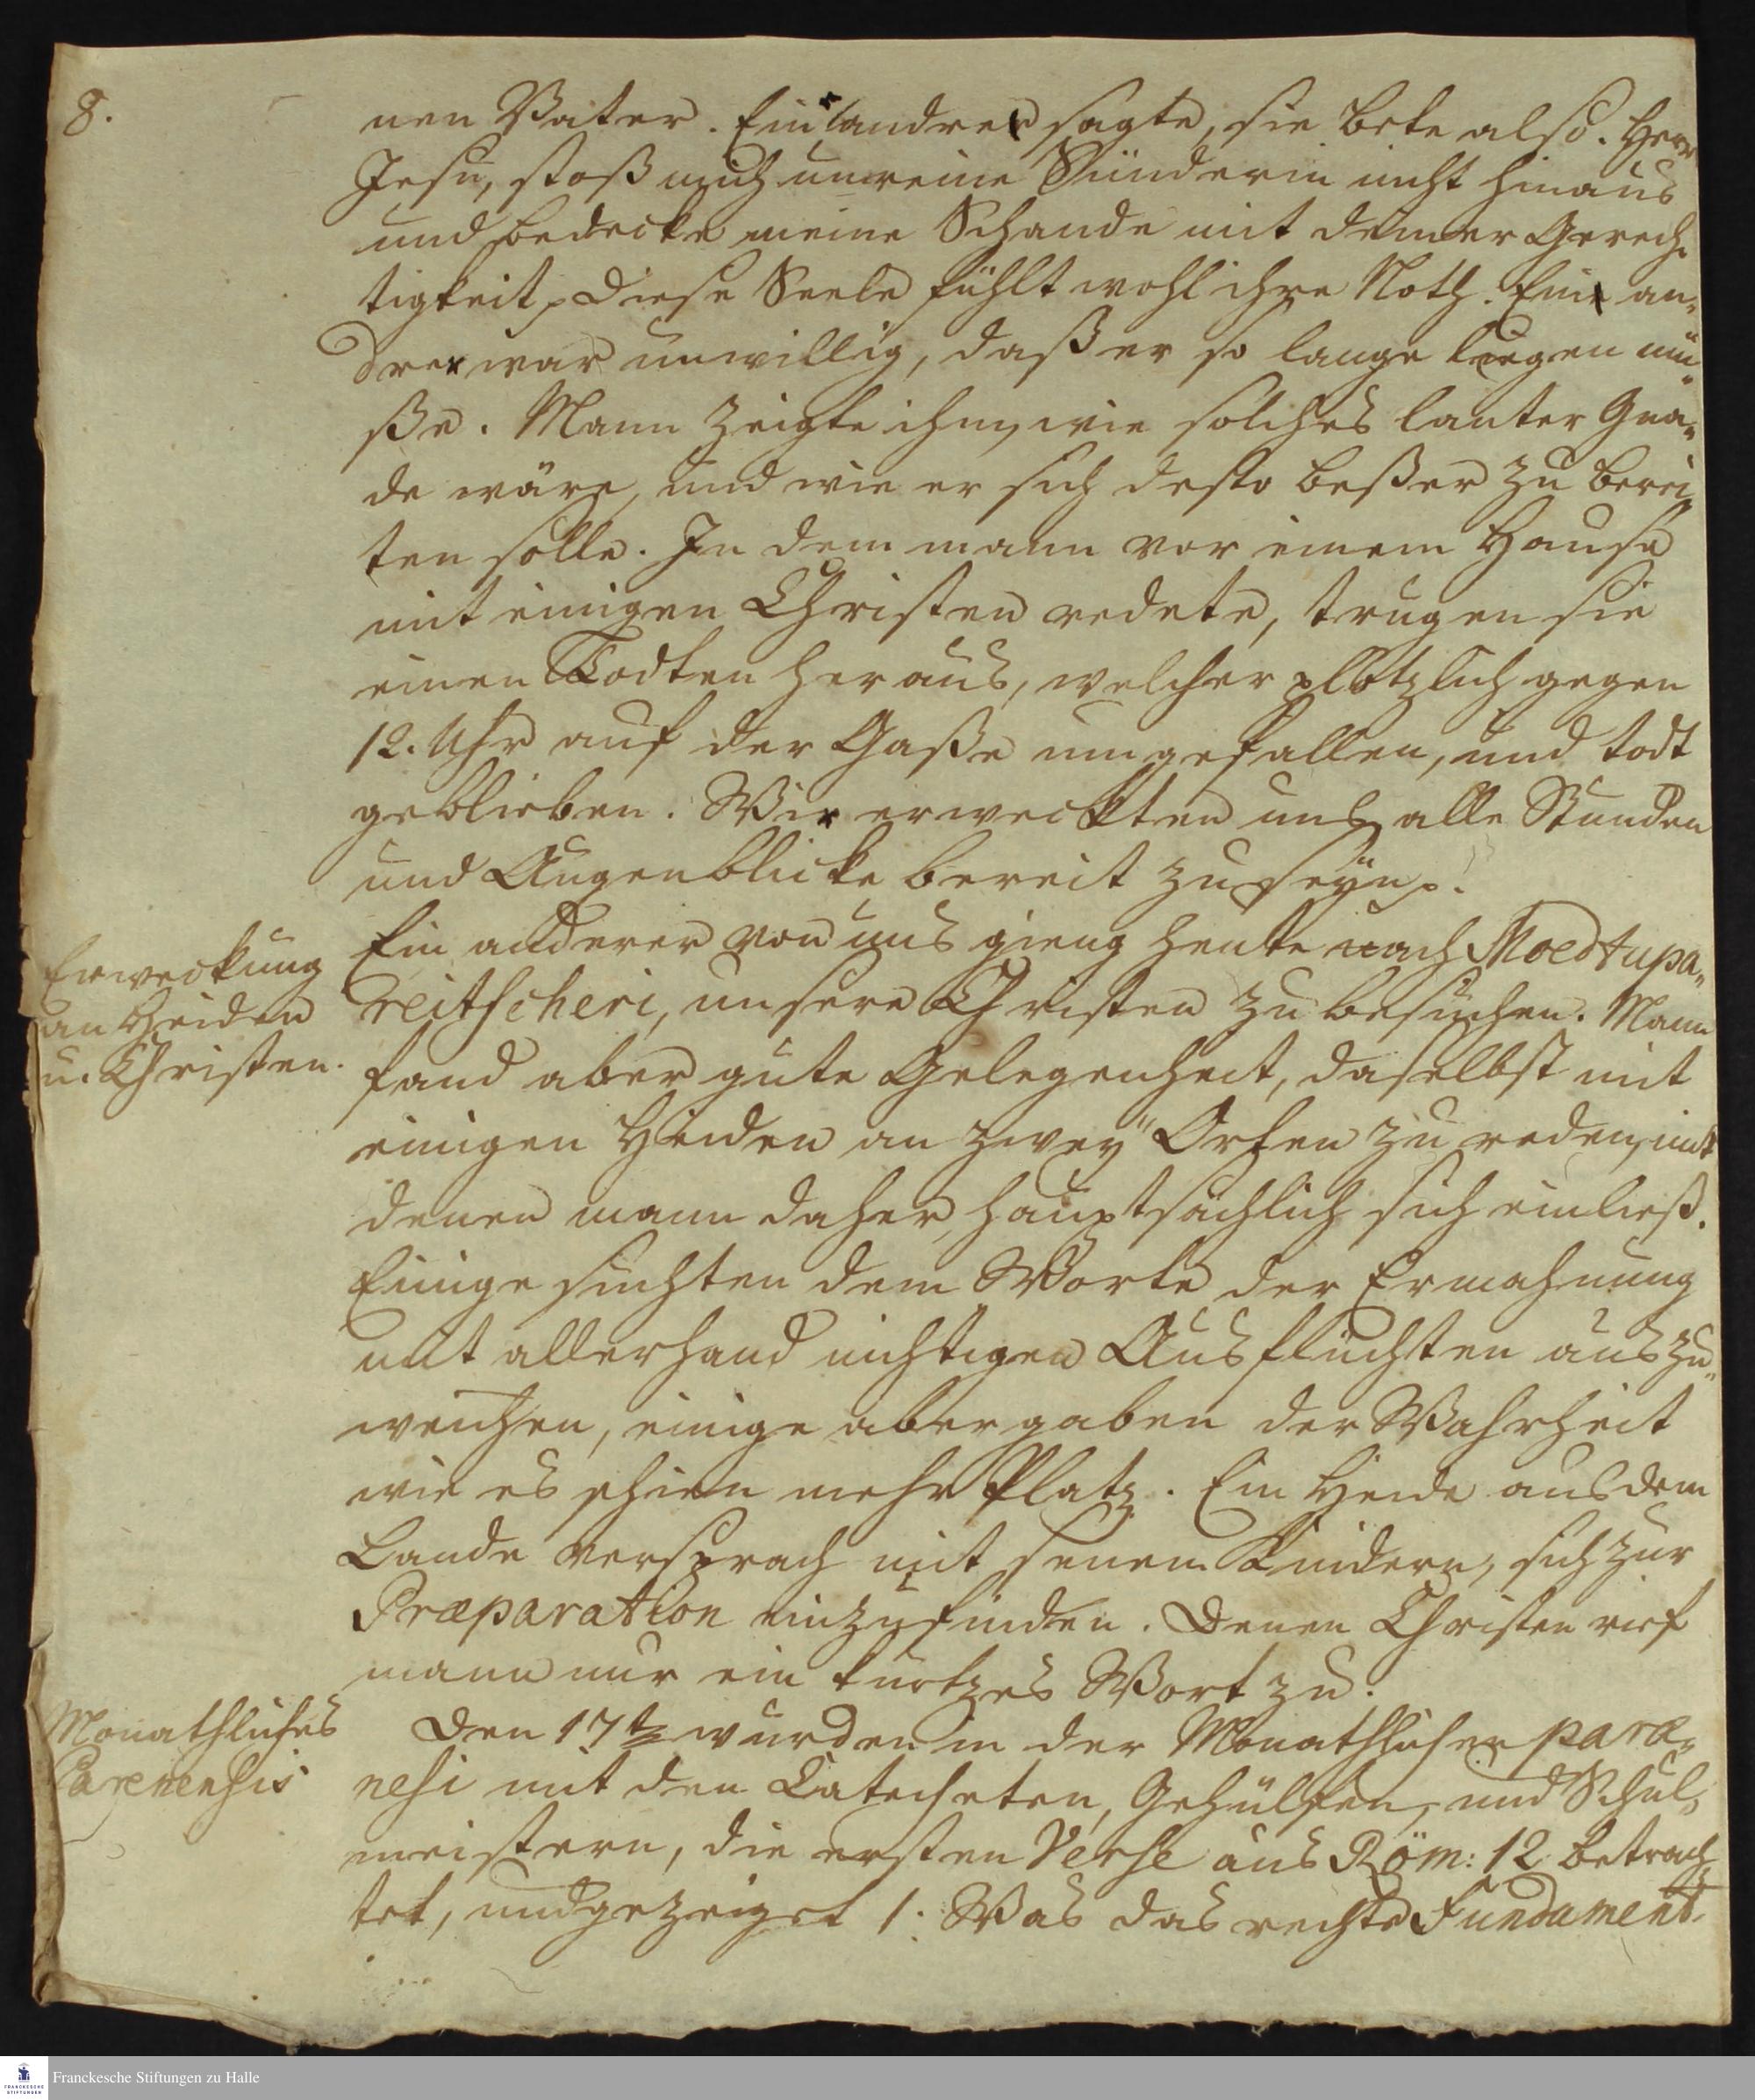 8.
nen Vater. Eine andre sagte, sie bete also. Herr
Jesu, stoß mich unreine Sünderin nicht hinaus
und bedecke meine Schande mit deiner Gerech-
tigkeit, diese Seele fühlt wohl ihre Noth. Ein an-
drer war unwillig, daß er so lange liegen mü-
ße. Mann zeigte ihm, wie solches lauter Gna-
de wäre, und wie er sich desto beßer zu berei-
ten solle. In dem mann vor einem Hause
mit einigen Christen redete, trugen sie
einen Todten heraus, welcher plötzlich gegen
12. Uhr auf der Gaße umgefallen, und todt
geblieben. Wir erweckten uns, alle Stunden
und Augenblicke bereit zu seyn p.
Erweckung
an Heiden
u. Christen.
Ein anderer von uns gieng heute nach Moedtupa-
reitscheri, unsere Christen zu besuchen. Mann
fand aber gute Gelegenheit, daselbst mit
einigen Heiden an zwey Orten zu reden, mit
denen mann daher hauptsächlich sich einließ.
Einige suchten dem Worte der Ermahnung
mit allerhand nichtigen Ausflüchten auszu-
weichen, einige aber gaben der Wahrheit
wie es schien mehr Platz. Ein Heide aus dem
Lande versprach mit seinen Kindern, sich zur
Præparation einzufinden. Denen Christen rief
mann nur ein kurtzes Wort zu.
Monathliches
Parenensis
Den 17t. wurden in der Monathlichen paræ-
nesi mit den Catecheten, Gehülfen, und Schul-
meistern, die ersten Verse aus Röm: 12 betrach-
tet, und gezeiget 1. Was das rechte Fundament
Franckesche Stiftungen zu Halle
FRANCKESCHE
STIFTUNGEN